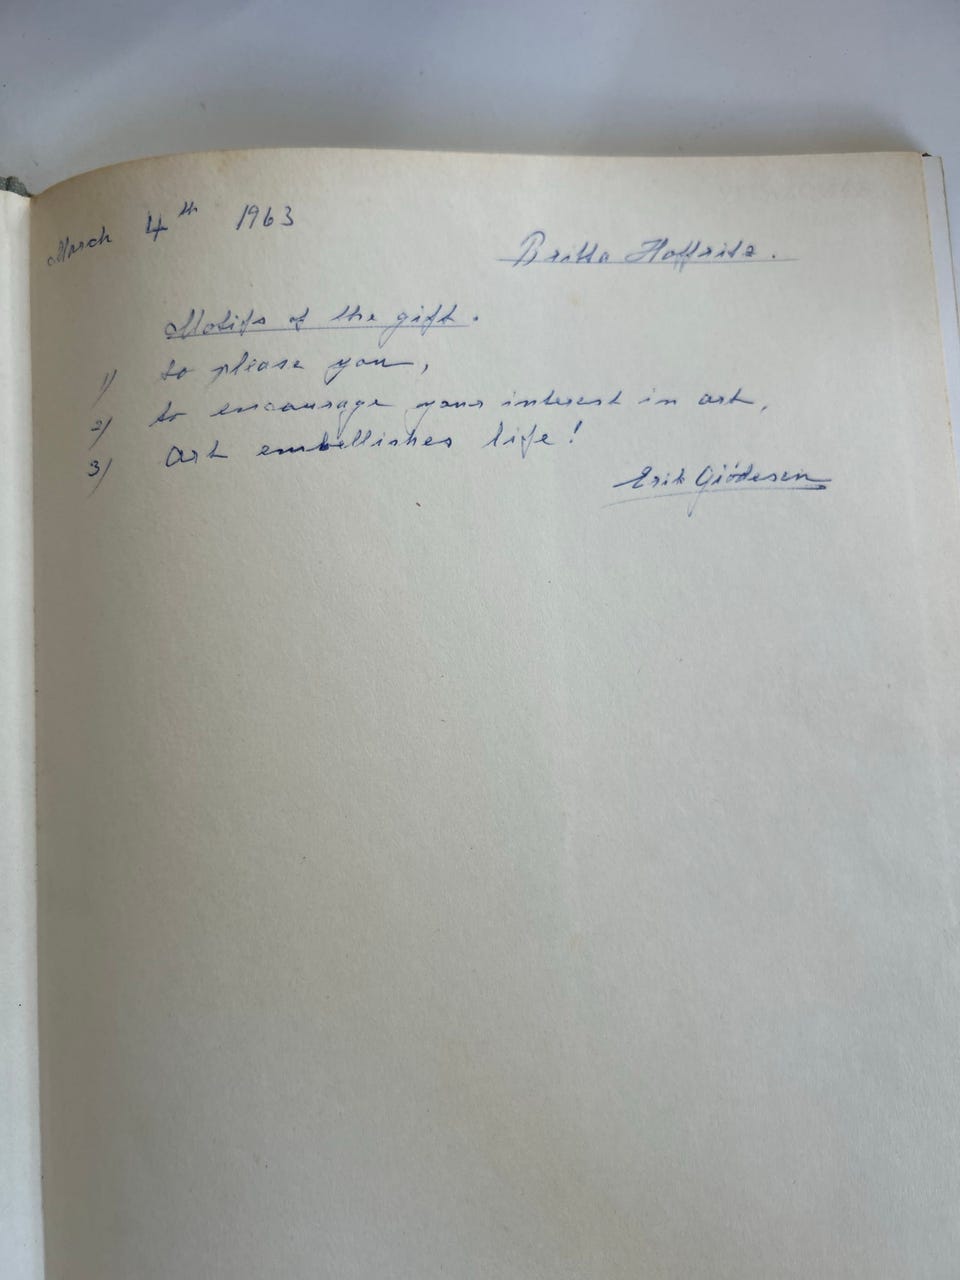 March 4th 1963
Britta Hoffritz.
Motifs of the gift.
1) to please you,
2) to encourage your interest in art,
3) Art embellishes life!
Erik